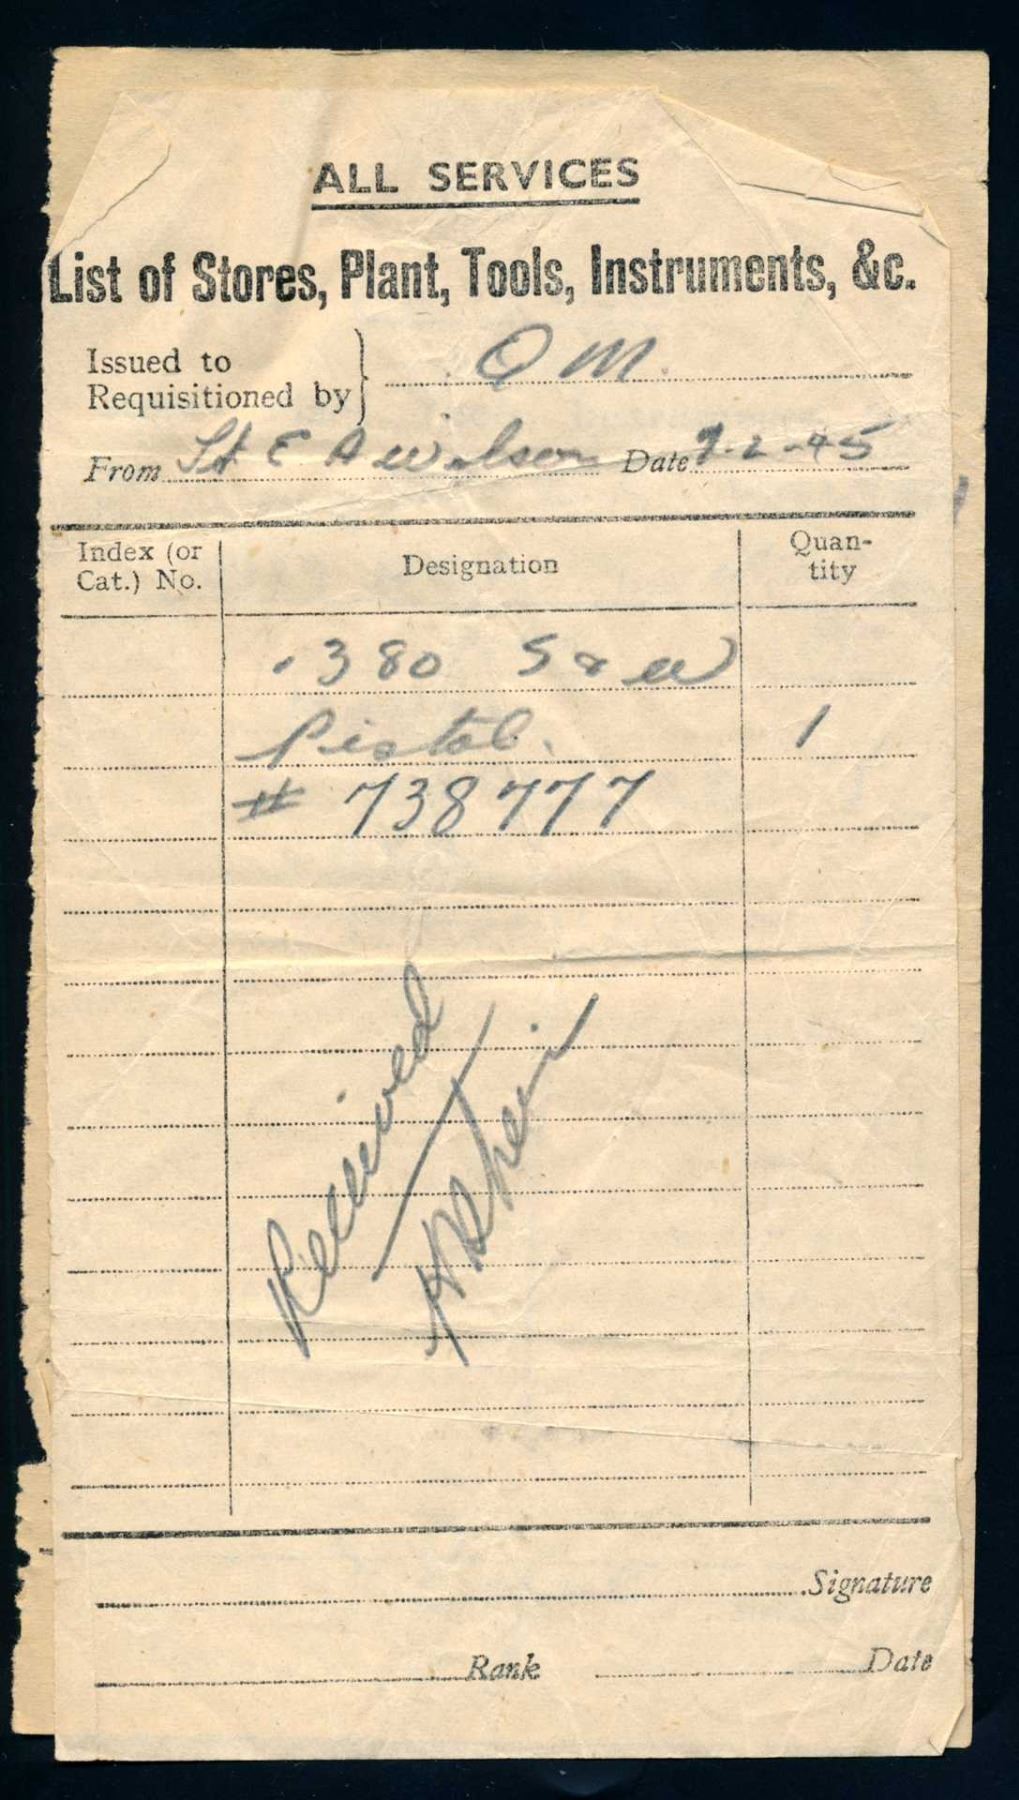 ALL SERVICES
List of Stores, Plant, Tools, Instruments, &c.
Issued to
Requisitioned by } Q M.
From Lt E A Wilson Date 9-2-45
Index (or Cat.) No. Designation Quantity
.380 S & W
Pistol. 1
# 738777
Received
Signature
Rank Date